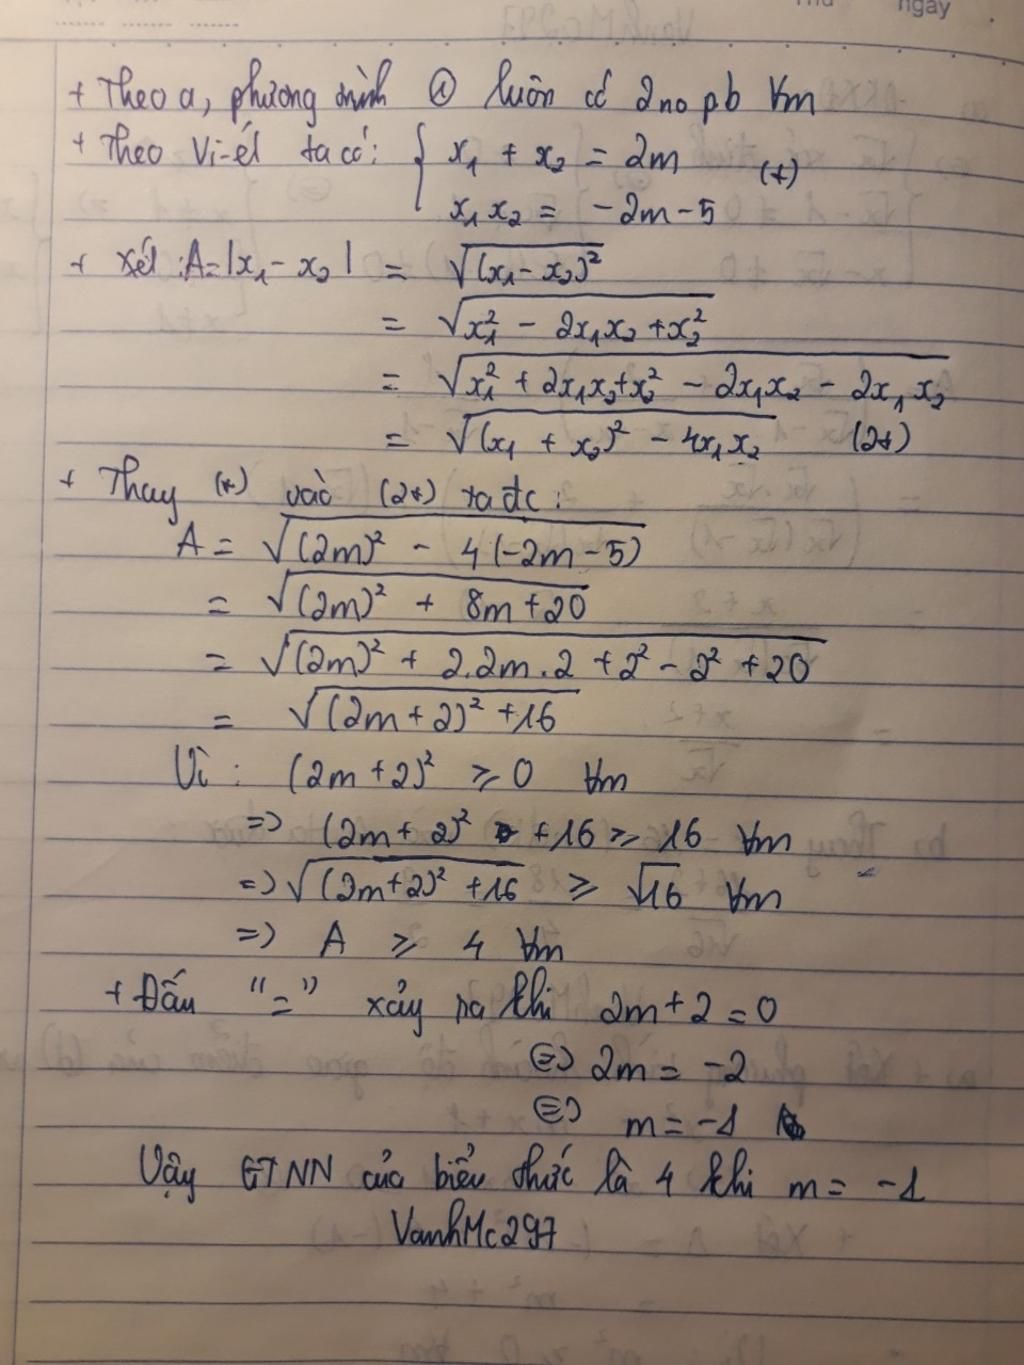 ngày
+ Theo a, phương trình ① luôn có 2 no pb ∀m
+ Theo Vi-ét ta có: { x₁ + x₂ = 2m (*)
x₁x₂ = -2m-5
+ Xét : A = |x₁ - x₂| = √(x₁ - x₂)²
= √x₁² - 2x₁x₂ + x₂²
= √x₁² + 2x₁x₂ + x₂² - 2x₁x₂ - 2x₁x₂
= √(x₁ + x₂)² - 4x₁x₂ (2*)
+ Thay (*) vào (2*) ta đc :
A = √(2m)² - 4(-2m-5)
= √(2m)² + 8m+20
= √(2m)² + 2.2m.2 + 2² - 2² + 20
= √(2m+2)² +16
Vì : (2m+2)² ⩾ 0 ∀m
=> (2m+2)² +16 ⩾ 16 ∀m
=> √(2m+2)² +16 ⩾ √16 ∀m
=> A ⩾ 4 ∀m
+ Dấu "=" xảy ra khi 2m+2 = 0
<=> 2m = -2
<=> m = -1
Vậy GTNN của biểu thức là 4 khi m = -1
VanhMc297